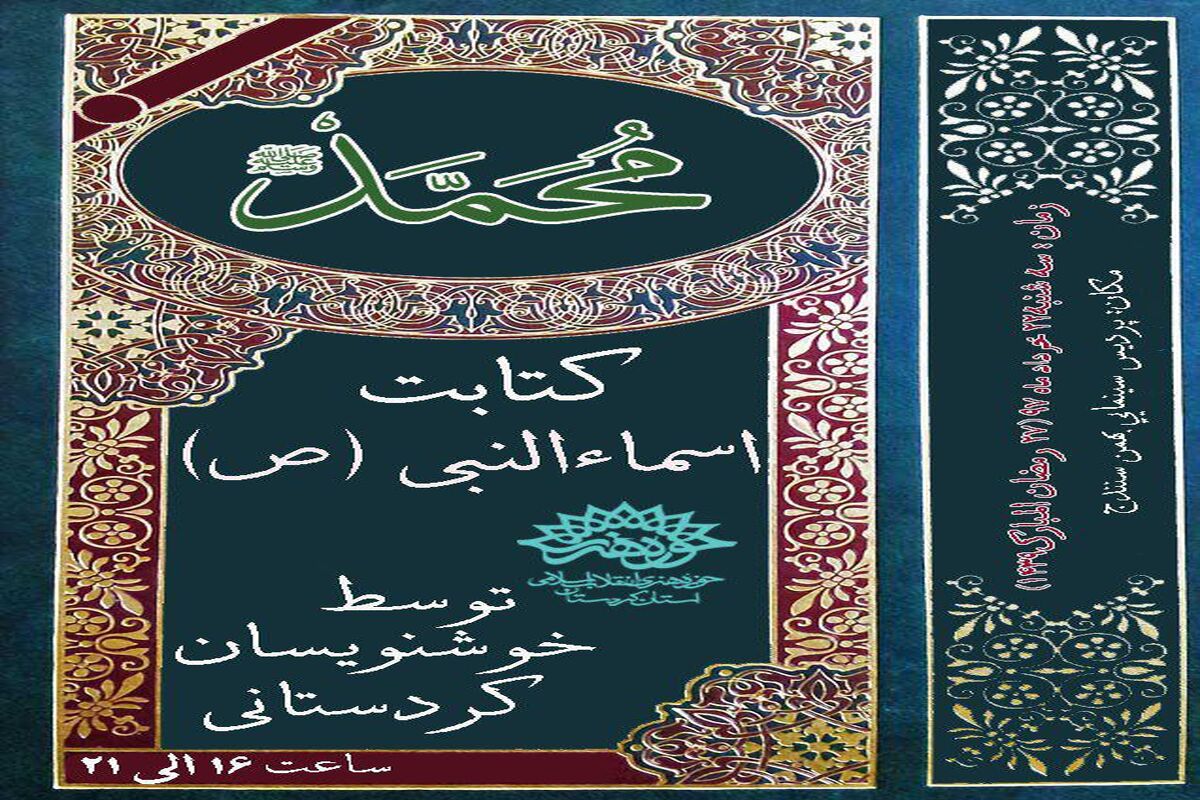 مُحَمَّد ﷺ
کتابت
اسماءالنبی (ص)
حوزه هنری
حوزه هنری انقلاب اسلامی
استان کردستان
توسط
خوشنویسان
کردستانی
ساعت ۱۶ الی ۲۱
زمان : سه شنبه ۲۲ خرداد ماه ۹۷ (۲۷ رمضان المبارک ۱۴۳۹)
مکان: پردیس سینمایی بهمن سنندج